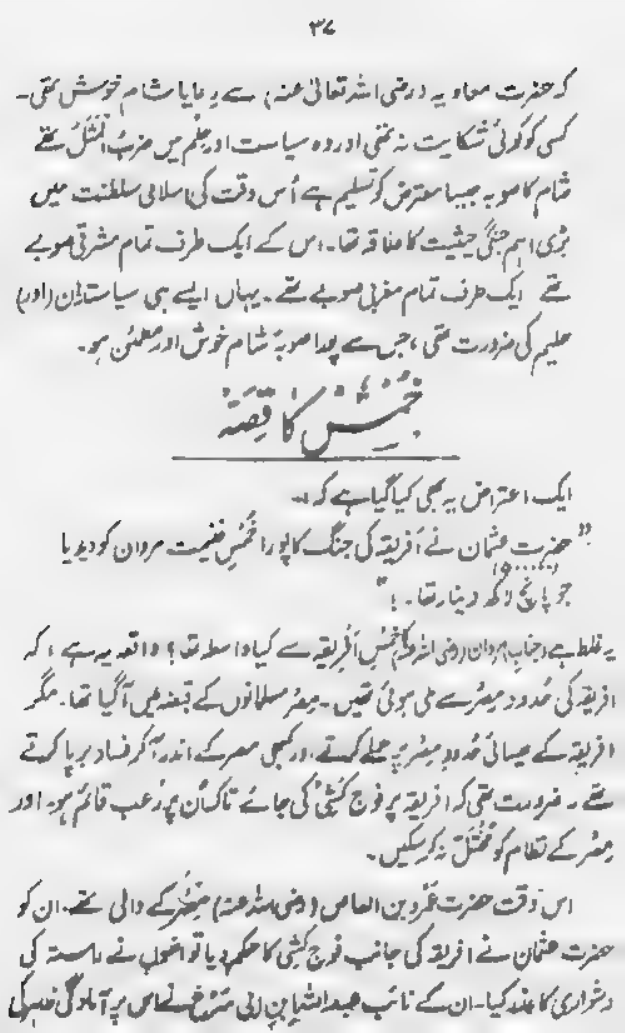 ۳۷
کہ حضرت معاویہ (رضی اللہ تعالیٰ عنہ) سے رعایا شام خوش تھی۔
کسی کو کوئی شکایت نہ تھی اور وہ سیاست اور حِلم میں ضربُ المَثَل تھے
شام کا صوبہ جیسا معترض کو تسلیم ہے اُس وقت کی اسلامی سلطنت میں
بڑی اہم جنگی حیثیت کا علاقہ تھا۔ اس کے ایک طرف تمام مشرقی صوبے
تھے ایک طرف تمام مغربی صوبے تھے۔ یہاں ایسے ہی سیاستدان (اور)
حلیم کی ضرورت تھی، جس سے پورا صوبۂ شام خوش اور مطمئن ہو۔
خُمُس کا قِصّہ
ایک اعتراض یہ بھی کیا گیا ہے کہ :۔
"حضرت عثمان نے اَفریقہ کی جنگ کا پورا خُمُسِ غنیمت مروان کو دیدیا
جو پانچ لاکھ (۵۰۰۰۰۰) دینار تھا۔!"
یہ غلط ہے، جناب مروان (رضی اللہ عنہ) کا خُمُسِ اَفریقہ سے کیا واسطہ تھا؟ واقعہ یہ ہے، کہ
افریقہ کی حُدود مِصْر سے ملی ہوئی تھیں۔ مِصْر مسلمانوں کے قبضہ میں آگیا تھا۔ مگر
افریقہ کے عیسائی حُدودِ مِصْر پر حملے کرتے اور کبھی مصر کے اندر آ کر فساد برپا کرتے
تھے۔ ضرورت تھی کہ افریقہ پر فوج کَشِی کی جائے تاکہ اُن پر رُعب قائم ہو۔ اور
مِصْر کے نظام کو مُخْتَل نہ کر سکیں۔
اس وَقت حضرت عَمْرو بن العاص (رضی اللہ عنہ) مِصْر کے والی تھے۔ ان کو
حضرت عثمان نے افریقہ کی جانب فوج کشی کا حکم دیا تو انھوں نے راستہ کی
دشواری کا عذر کیا۔ ان کے نائب عبداللہ ابن ابی سَرْح نے اس پر آمادگی ظاہر کی